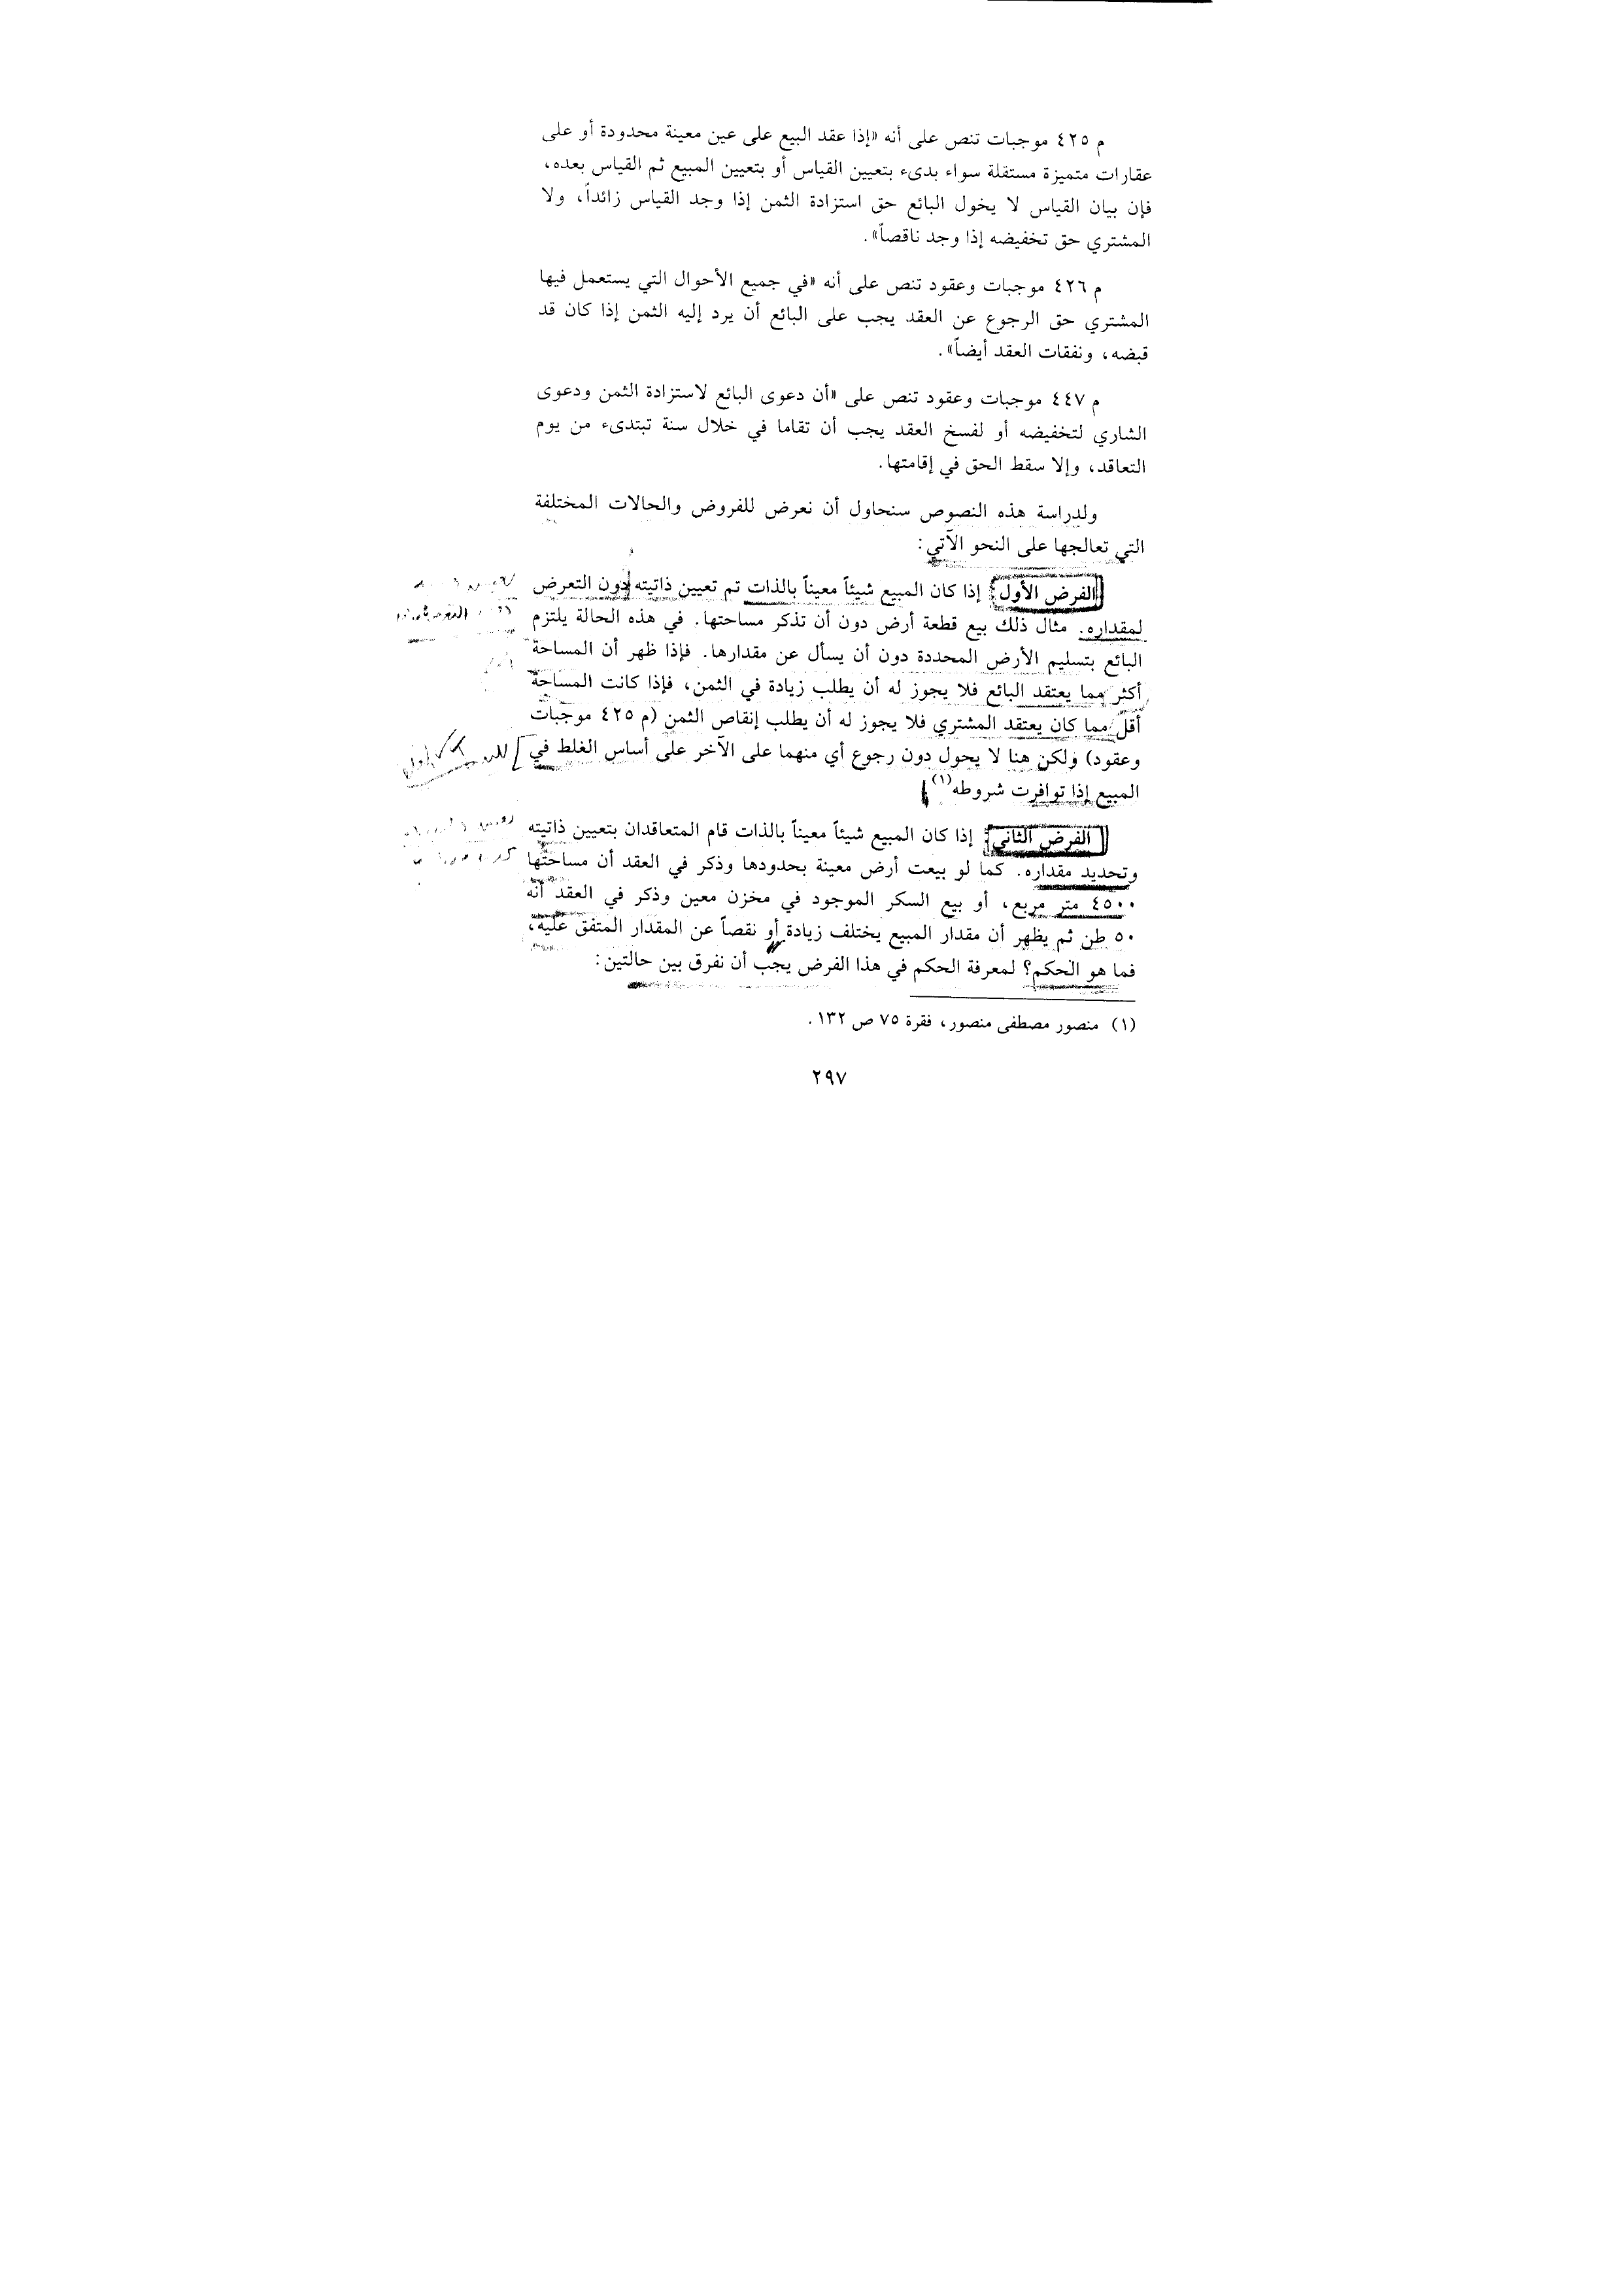 م ٤٢٥ موجبات تنص على أنه «إذا عقد البيع على عين معينة محدودة أو على
عقارات متميزة مستقلة سواء بدىء بتعيين القياس أو بتعيين المبيع ثم القياس بعده،
فإن بيان القياس لا يخول البائع حق استزادة الثمن إذا وجد القياس زائداً، ولا
المشتري حق تخفيضه إذا وجد ناقصاً».
م ٤٢٦ موجبات وعقود تنص على أنه «في جميع الأحوال التي يستعمل فيها
المشتري حق الرجوع عن العقد يجب على البائع أن يرد إليه الثمن إذا كان قد
قبضه، ونفقات العقد أيضاً».
م ٤٤٧ موجبات وعقود تنص على «أن دعوى البائع لاستزادة الثمن ودعوى
الشاري لتخفيضه أو لفسخ العقد يجب أن تقاما في خلال سنة تبتدىء من يوم
التعاقد، وإلا سقط الحق في إقامتها.
ولدراسة هذه النصوص سنحاول أن نعرض للفروض والحالات المختلفة
التي تعالجها على النحو الآتي:
الفرض الأول: إذا كان المبيع شيئاً معيناً بالذات تم تعيين ذاتيته دون التعرض
لمقداره. مثال ذلك بيع قطعة أرض دون أن تذكر مساحتها. في هذه الحالة يلتزم
البائع بتسليم الأرض المحددة دون أن يسأل عن مقدارها. فإذا ظهر أن المساحة
أكثر مما يعتقد البائع فلا يجوز له أن يطلب زيادة في الثمن، فإذا كانت المساحة
أقل مما كان يعتقد المشتري فلا يجوز له أن يطلب إنقاص الثمن (م ٤٢٥ موجبات
وعقود) ولكن هنا لا يحول دون رجوع أي منهما على الآخر على أساس الغلط في
المبيع إذا توافرت شروطه(١)
الفرض الثاني: إذا كان المبيع شيئاً معيناً بالذات قام المتعاقدان بتعيين ذاتيته
وتحديد مقداره. كما لو بيعت أرض معينة بحدودها وذكر في العقد أن مساحتها
٤٥٠٠ متر مربع، أو بيع السكر الموجود في مخزن معين وذكر في العقد أنه
٥٠ طن ثم يظهر أن مقدار المبيع يختلف زيادة أو نقصاً عن المقدار المتفق عليه،
فما هو الحكم؟ لمعرفة الحكم في هذا الفرض يجب أن نفرق بين حالتين:
(١) منصور مصطفى منصور، فقرة ٧٥ ص ١٣٢.
٢٩٧